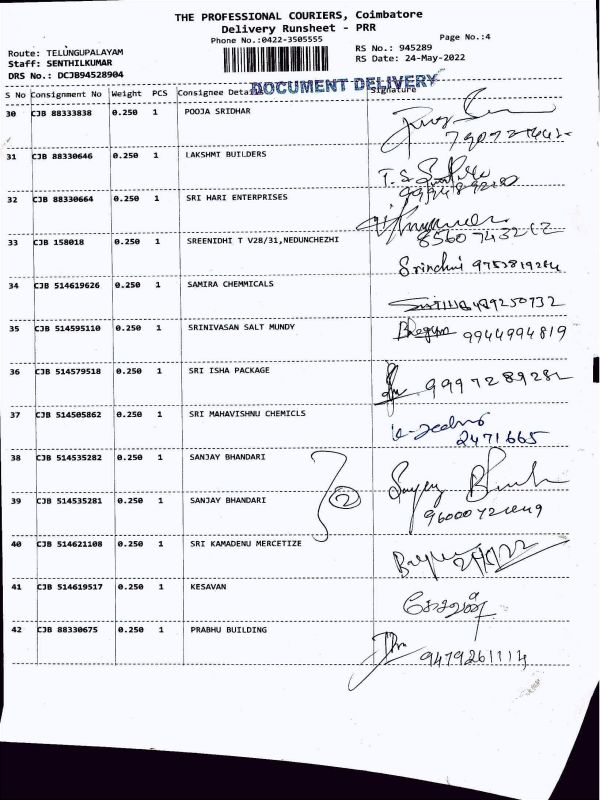 THE PROFESSIONAL COURIERS, Coimbatore
Delivery Runsheet - PRR
Phone No.:0422-3505555
Page No.:4
Route: TELUNGUPALAYAM
RS No.: 945289
Staff: SENTHILKUMAR
RS Date: 24-May-2022
DRS No.: DCJB94528904
DOCUMENT DELIVERY
S No Consignment No Weight PCS Consignee Details Signature
30 CJB 88333838 0.250 1 POOJA SRIDHAR
31 CJB 88330646 0.250 1 LAKSHMI BUILDERS
32 CJB 88330664 0.250 1 SRI HARI ENTERPRISES
33 CJB 158018 0.250 1 SREENIDHI T V28/31,NEDUNCHEZHI
34 CJB 514619626 0.250 1 SAMIRA CHEMMICALS
35 CJB 514595110 0.250 1 SRINIVASAN SALT MUNDY 9944994819
36 CJB 514579518 0.250 1 SRI ISHA PACKAGE
37 CJB 514505862 0.250 1 SRI MAHAVISHNU CHEMICLS
2471665
38 CJB 514535282 0.250 1 SANJAY BHANDARI
2
39 CJB 514535281 0.250 1 SANJAY BHANDARI
40 CJB 514621108 0.250 1 SRI KAMADENU MERCETIZE
41 CJB 514619517 0.250 1 KESAVAN
42 CJB 88330675 0.250 1 PRABHU BUILDING
9479261114